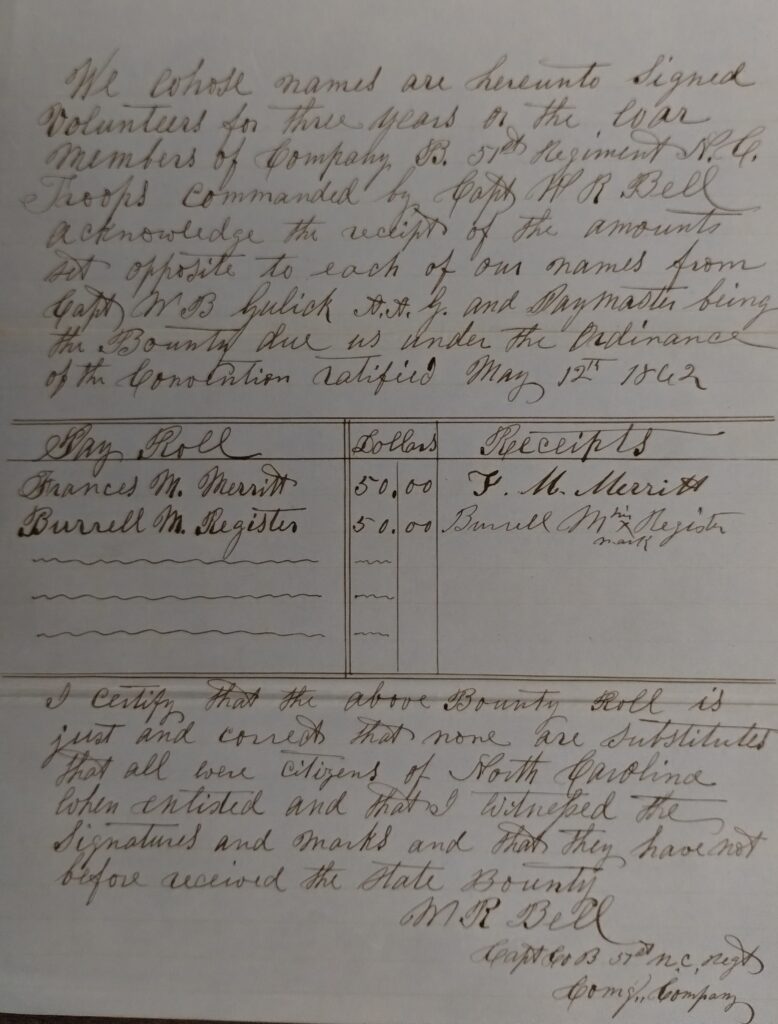 We whose names are hereunto signed
Volunteers for three years or the war
Members of Company B. 51st Regiment N.C.
Troops commanded by Capt W R Bell
acknowledge the receipt of the amounts
set opposite to each of our names from
Capt W B Gulick A.A.G. and Paymaster being
the Bounty due us under the Ordinance
of the Convention ratified May 12th 1862
Pay Roll Dollars Receipts
Frances M. Merritt 50.00 F. M. Merritt
Burrell M. Register 50.00 Burrell M his x mark Register
I certify that the above Bounty Roll is
just and correct that none are substitutes
that all were citizens of North Carolina
when enlisted and that I witnessed the
signatures and marks and that they have not
before received the State Bounty
W R Bell
Capt Co B 51st N.C. Regt
Comg., Company